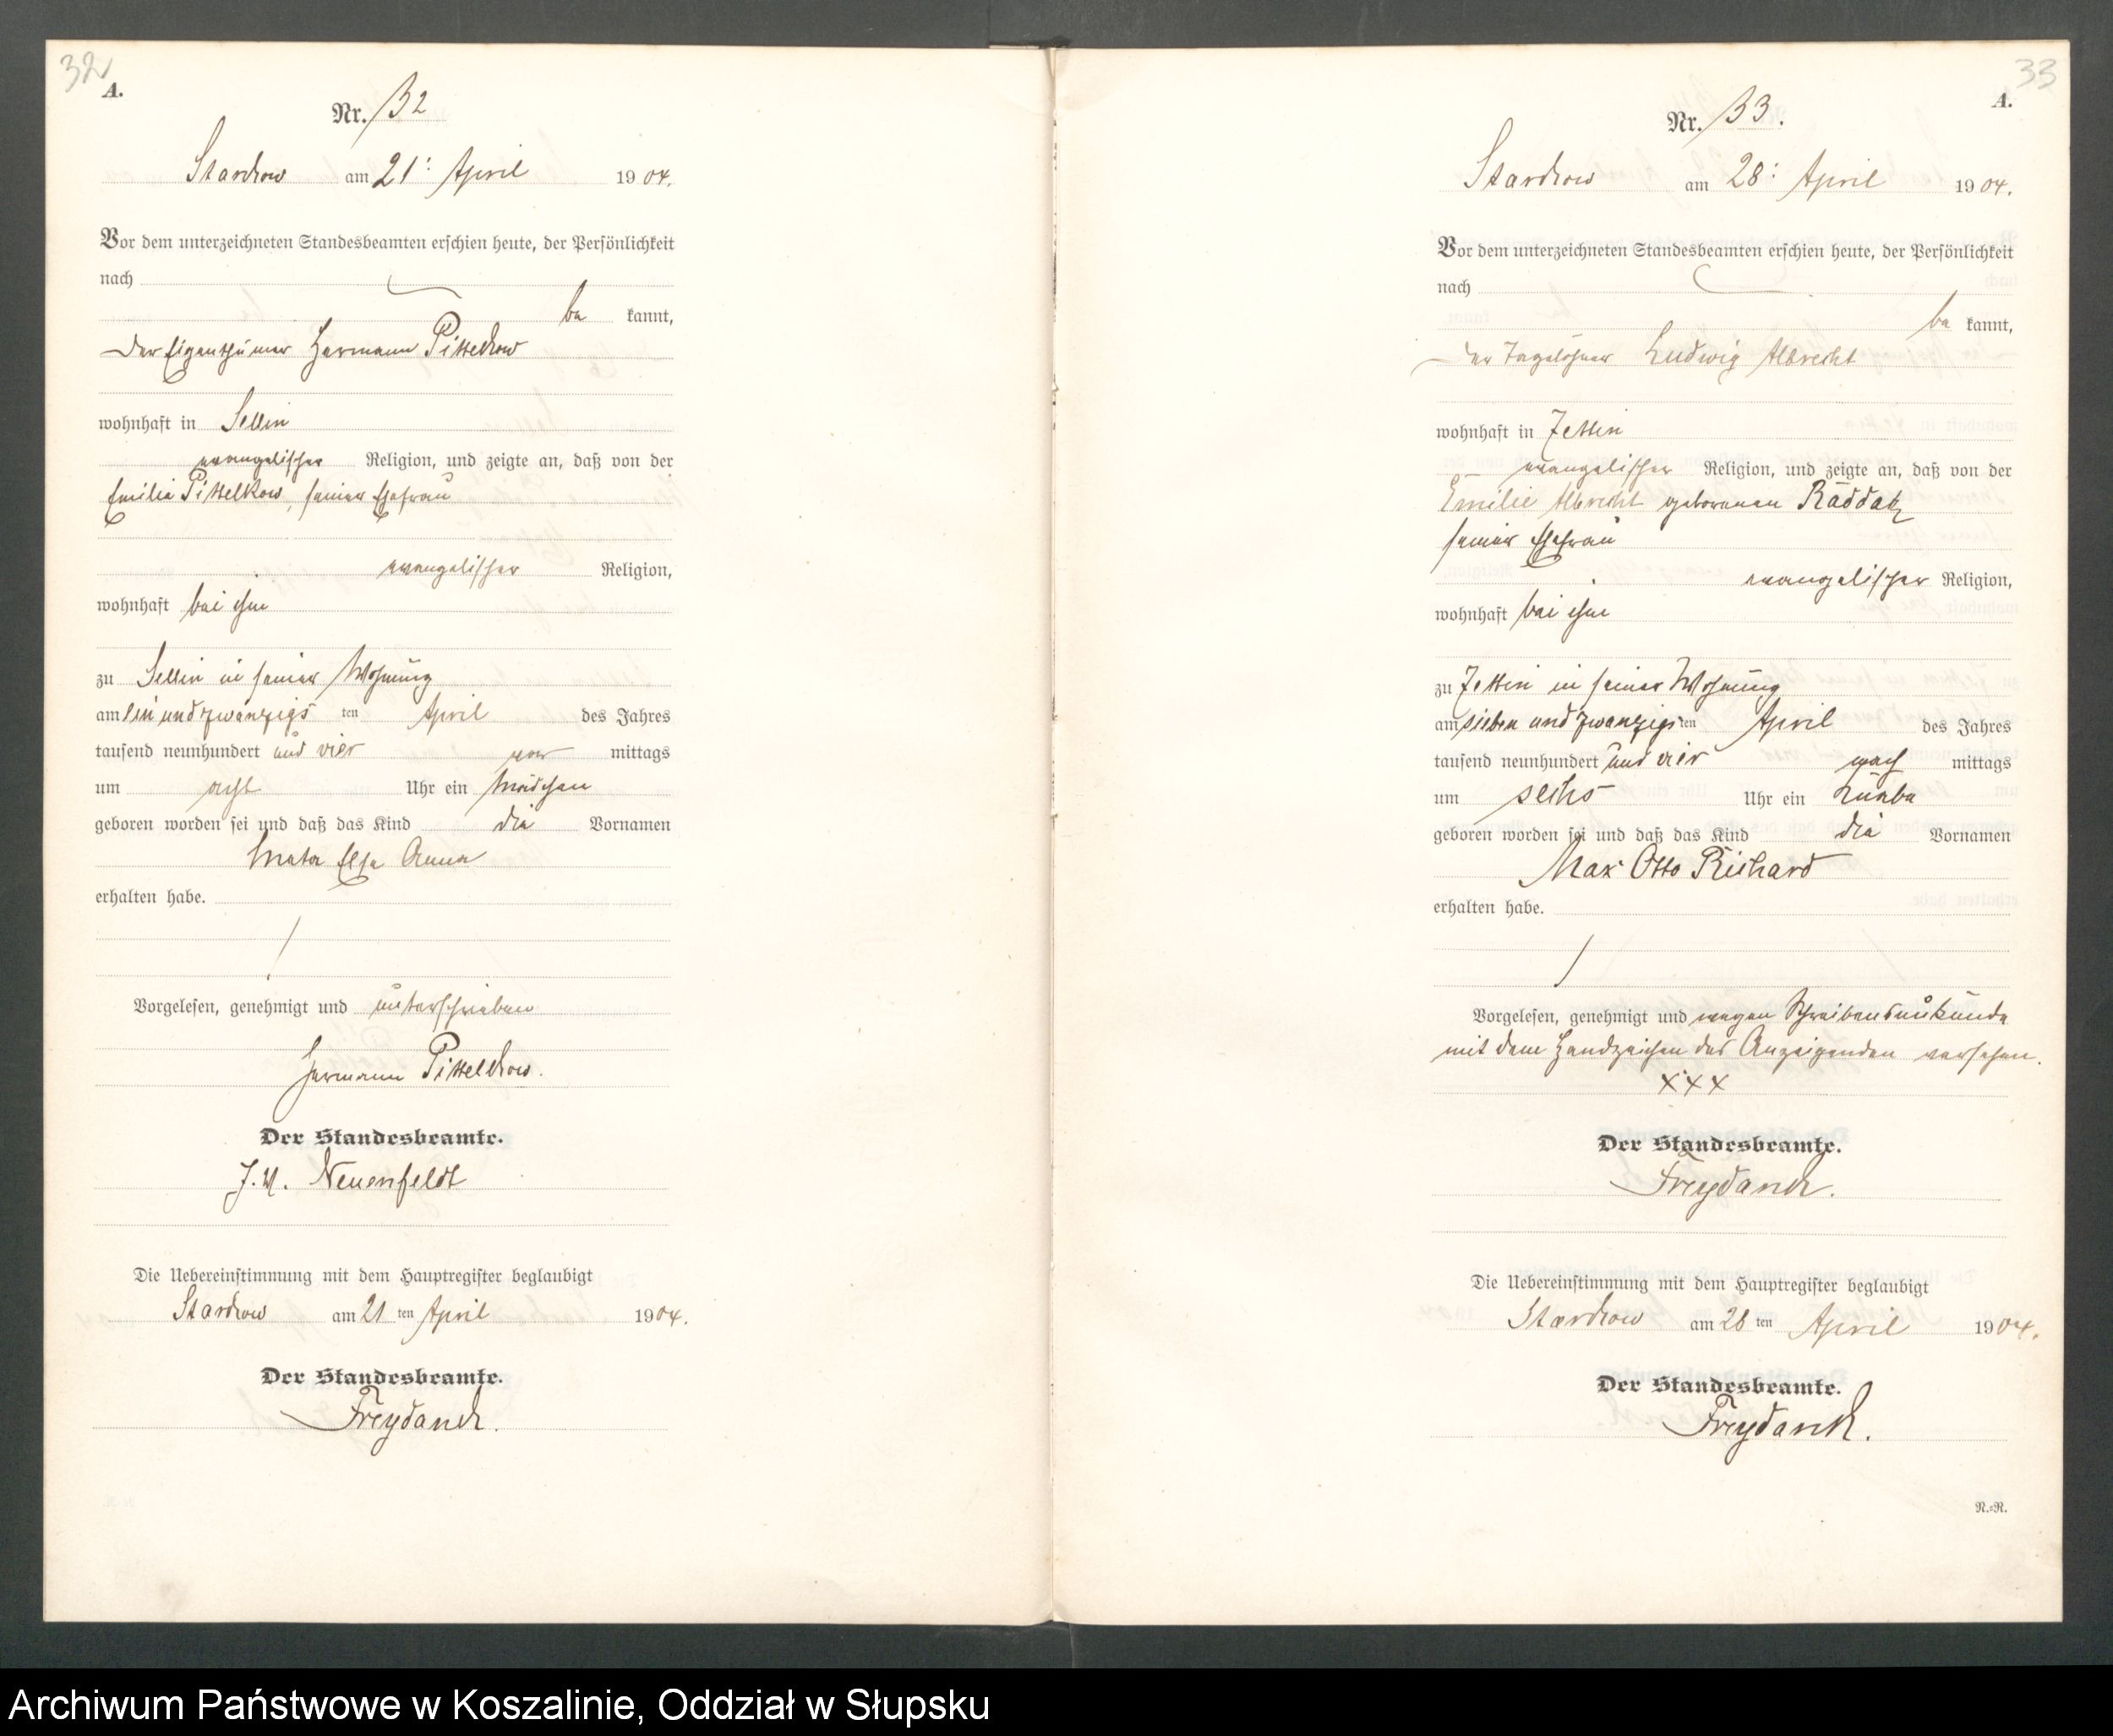 32
A.
Nr. 32
Starckow am 21: April 1904.
Vor dem unterzeichneten Standesbeamten erschien heute, der Persönlichkeit
nach
be kannt,
der Eigenthümer Hermann Pittelkow
wohnhaft in Sellin
evangelischer Religion, und zeigte an, daß von der
Emilie Pittelkow, seiner Ehefrau
evangelischer Religion,
wohnhaft bei ihm
zu Sellin in seiner Wohnung
am ein und zwanzigs ten April des Jahres
tausend neunhundert und vier vor mittags
um acht Uhr ein Mädchen
geboren worden sei und daß das Kind die Vornamen
Meta Elsa Anna
erhalten habe.
Vorgelesen, genehmigt und unterschrieben
Hermann Pittelkow.
Der Standesbeamte.
J.V. Neuenfeldt
Die Uebereinstimmung mit dem Hauptregister beglaubigt
Starckow am 21 ten April 1904.
Der Standesbeamte.
Freydanck.
33
A.
Nr. 33.
Starckow am 28: April 1904.
Vor dem unterzeichneten Standesbeamten erschien heute, der Persönlichkeit
nach
be kannt,
der Tagelöhner Ludwig Albrecht
wohnhaft in Zettin
evangelischer Religion, und zeigte an, daß von der
Emilie Albrecht geborenen Raddatz
seiner Ehefrau
evangelischer Religion,
wohnhaft bei ihm
zu Zettin in seiner Wohnung
am sieben und zwanzigs ten April des Jahres
tausend neunhundert und vier nach mittags
um sechs Uhr ein Knabe
geboren worden sei und daß das Kind die Vornamen
Max Otto Richard
erhalten habe.
Vorgelesen, genehmigt und wegen Schreibensunkunde
mit dem Handzeichen des Anzeigenden versehen.
XXX
Der Standesbeamte.
Freydanck.
Die Uebereinstimmung mit dem Hauptregister beglaubigt
Starckow am 28 ten April 1904.
Der Standesbeamte.
Freydanck.
N.=R.
Archiwum Państwowe w Koszalinie, Oddział w Słupsku